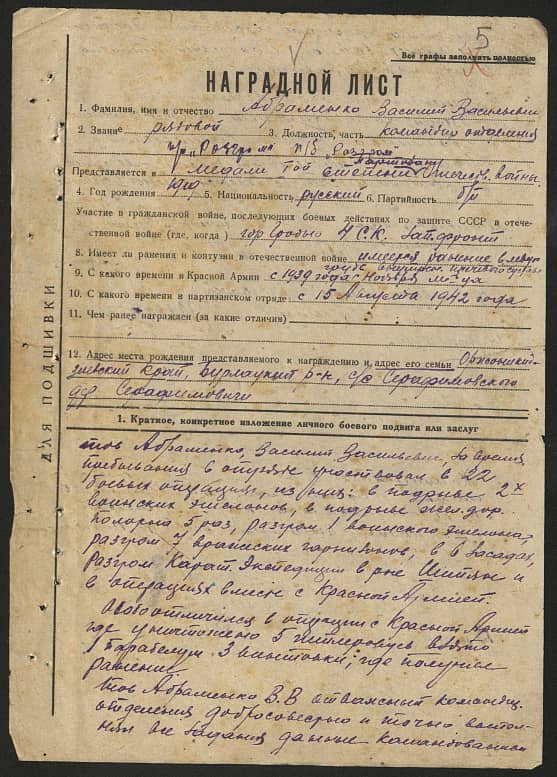 5
Все графы заполнить полностью
НАГРАДНОЙ ЛИСТ
1. Фамилия, имя и отчество Абраменко Василий Васильевич
2. Звание рядовой 3. Должность, часть командир отделения
п/о "Разгром" п/б "Разгром"
Партизану
Представляется к медали I ой степени Отечеств. войны.
4. Год рождения 1919 5. Национальность русский 6. Партийность б/п
Участие в гражданской войне, последующих боевых действиях по защите СССР в отече-
ственной войне (где, когда) гор Гродно 4 С.К. Зап. фронт
8. Имеет ли ранения и контузии в отечественной войне имеется ранение в левую
9. С какого времени в Красной Армии с 1939 года Ноября м-ца
10. С какого времени в партизанском отряде с 15 Августа 1942 года
11. Чем ранее награжден (за какие отличия)
12. Адрес места рождения представляемого к награждению и адрес его семьи Орджоникид-
зевский край, Бурлацкий р-н, с/с Серафимовского
дер Серафимовичи
ДЛЯ ПОДШИВКИ
1. Краткое, конкретное изложение личного боевого подвига или заслуг
тов Абраменко, Василий Васильевич, за время
пребывания в отряде участвовал в 22
боевых операциях, из них: в подрыве 2х
воинских эшелонов, в подрыве жел. дор.
полотна 5 раз, разгром 1 воинского эшелона,
разгром 7 вражиских гарнизонов, в 6 засадах,
разгром Карат. Экспедиции в р-не и
в операциях вместе с Красной Армией.
Особо отличился в операции с Красной Армией
где уничтожено 5 гитлеровцев взято
1 парабелум 3 винтовки; где получил
ранение
тов Абраменко В.В отважный командир
отделения добросовестно и точно выпол-
нял все задания данные командованием